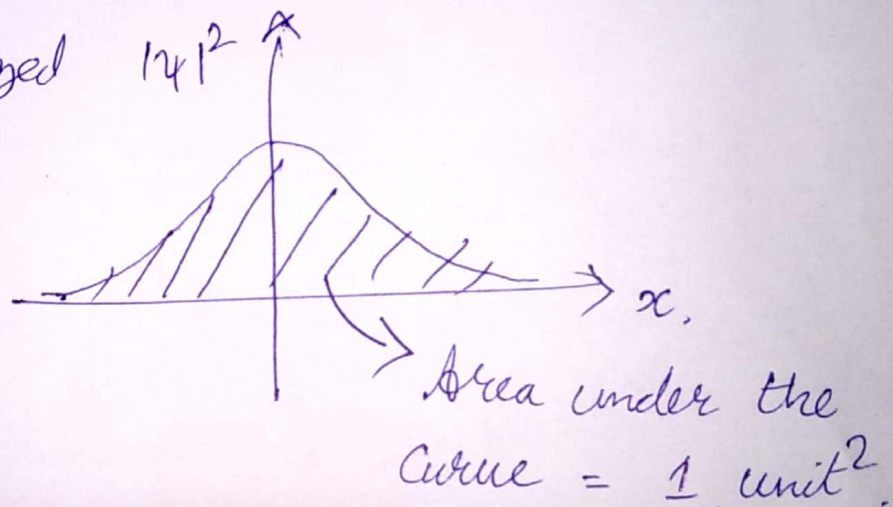 |ψ|²
x.
Area under the
Curve = 1 unit²